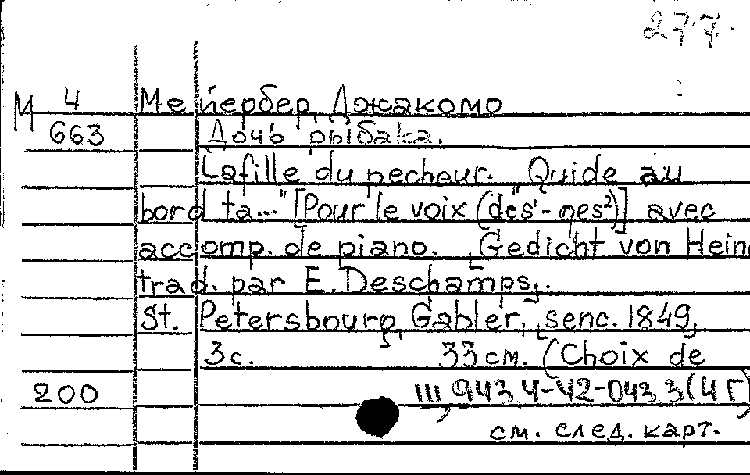 277.
М 4 Мейербер, Джакомо
663 Дочь рыбака.
La fille du pecheur. "Quide au
bord ta..." [Pour le voix (des¹-ges²)] avec
accomp. de piano. [Gedicht von Hein
trad. par E. Deschamps].
St. Petersbourg, Gabler, [senc. 1849,
3 с. 33 см. (Choix de
200
см. след. карт.